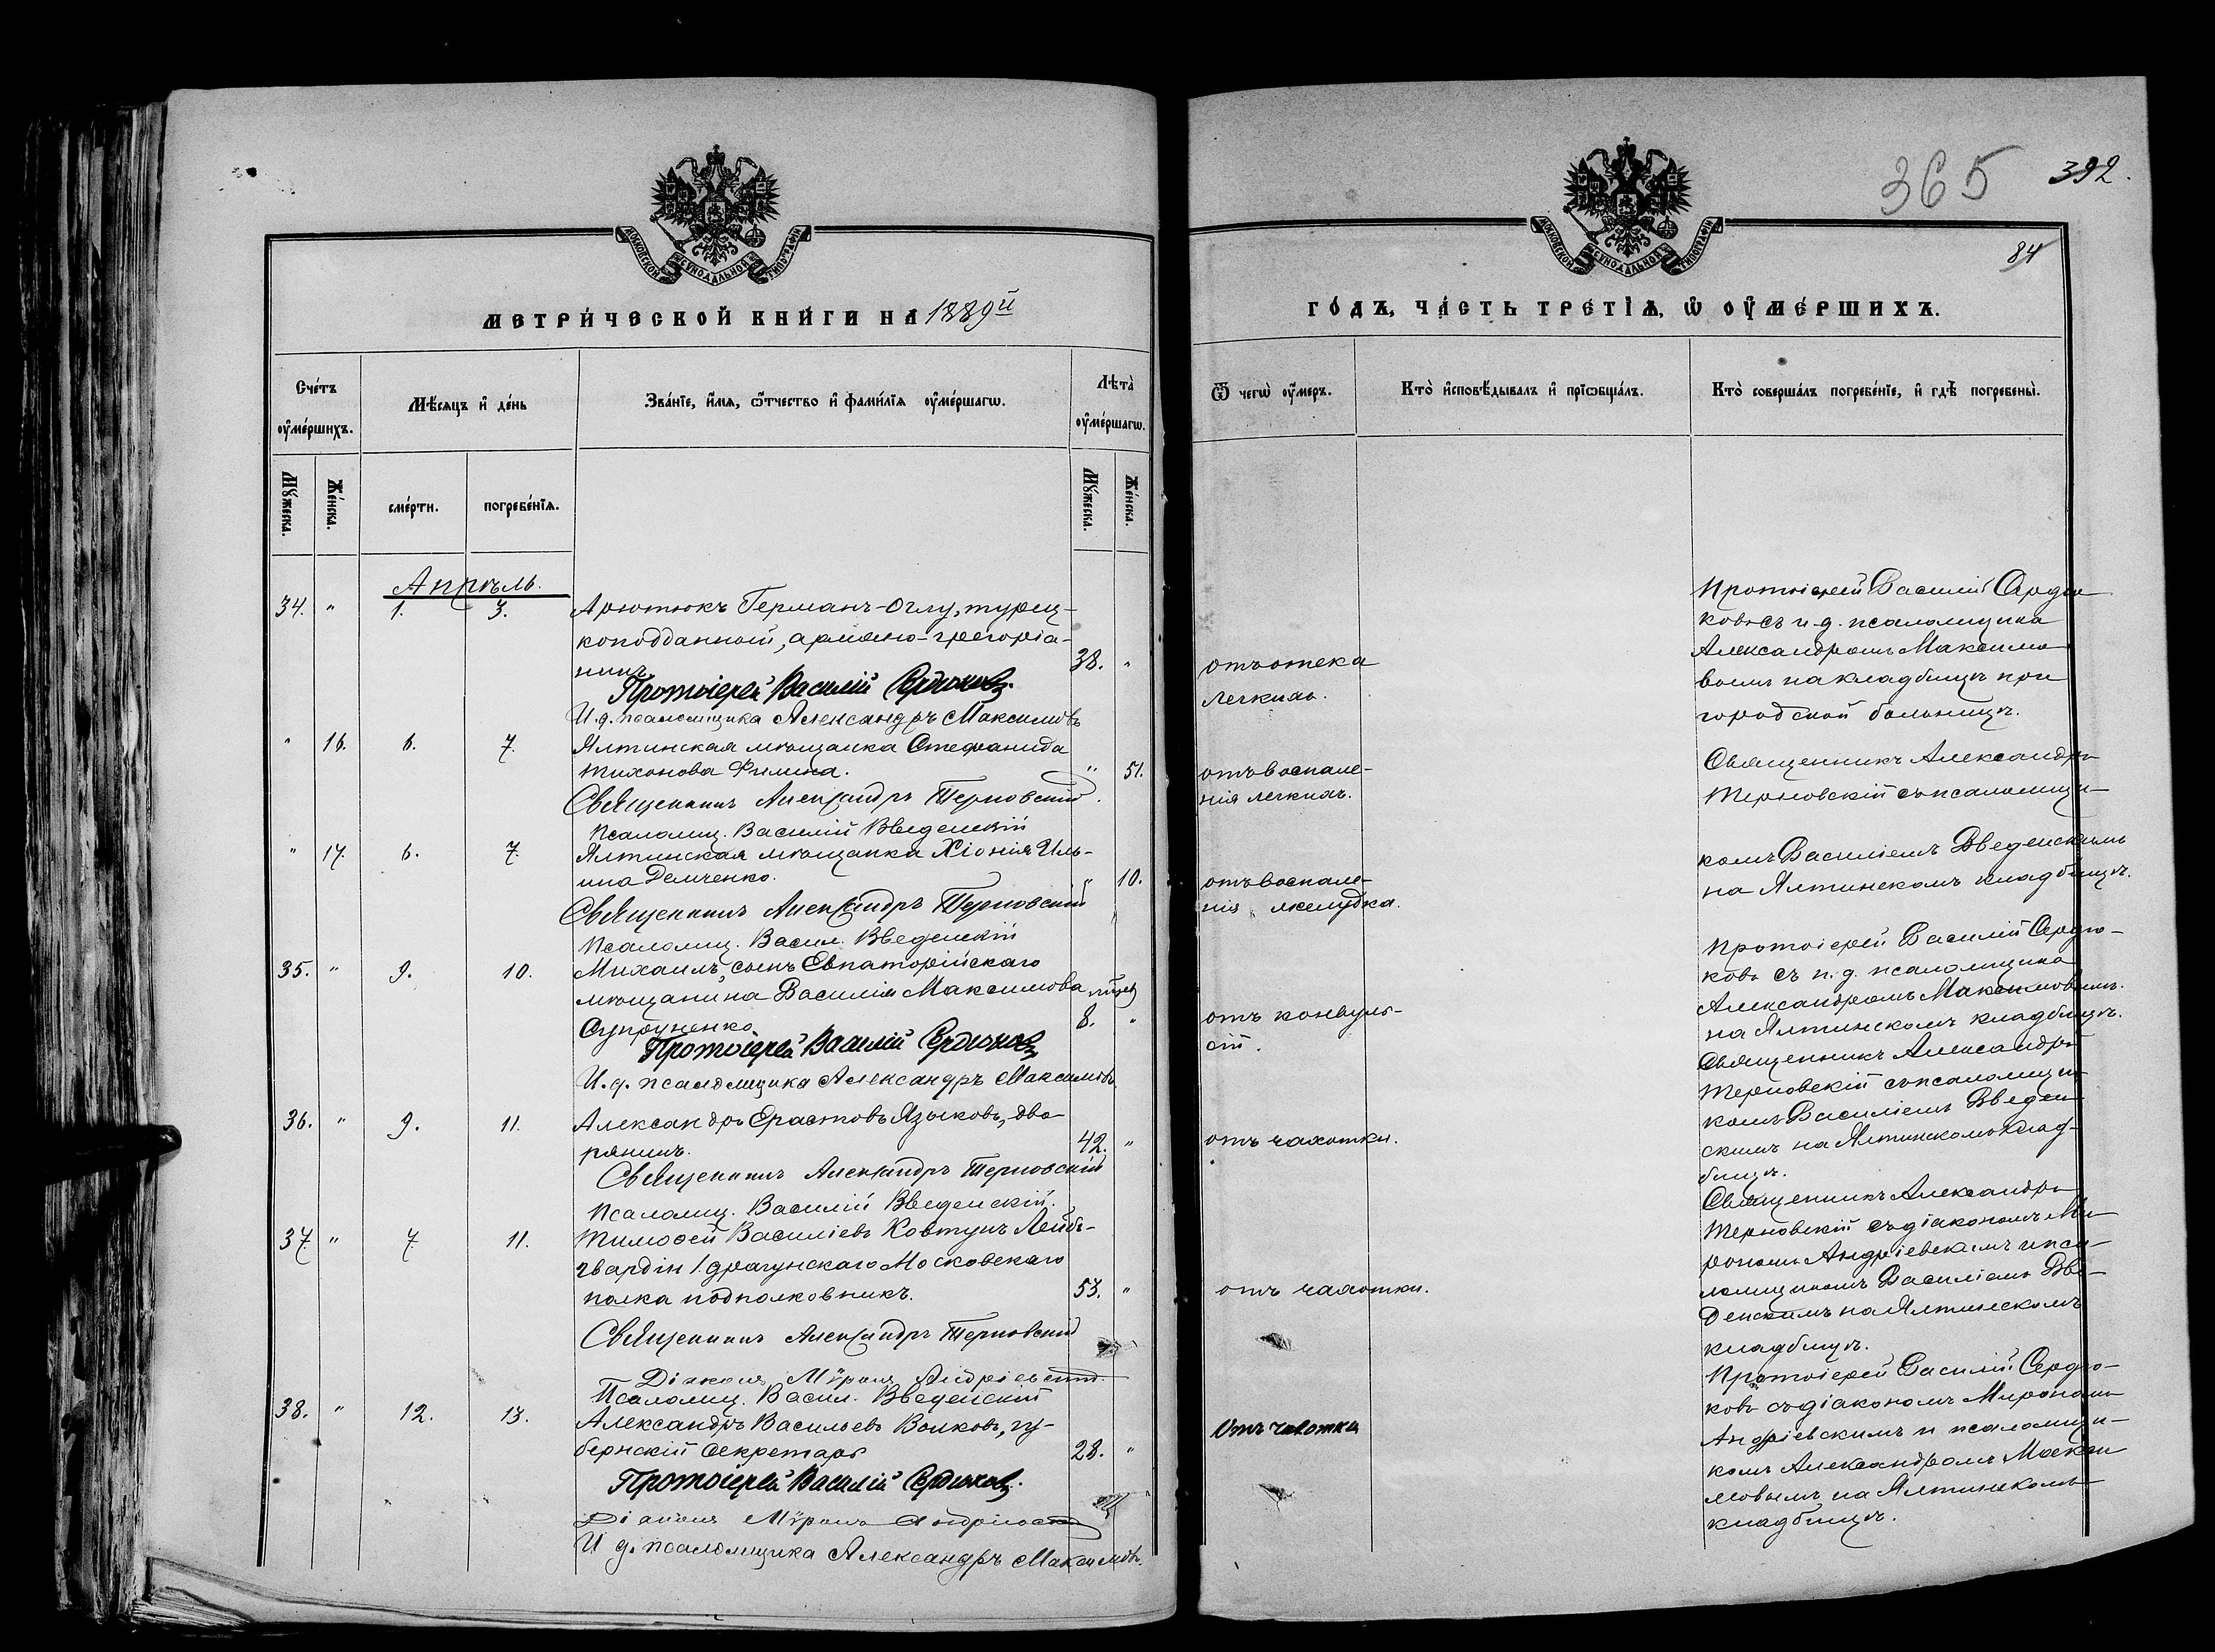 365
392.
84
МОСКОВСКОЙ СУНОДАЛЬНОЙ ТИПОГРАФІИ
МОСКОВСКОЙ СУНОДАЛЬНОЙ ТИПОГРАФІИ
МЕТРИ́ЧЕСКОЙ КНИ́ГИ НА 1889й
ГО́ДЪ, ЧА́СТЬ ТРЕ́ТІѦ, Ѡ ОУМЕ́РШИХЪ.
Сче́тъ оуме́ршихъ.
Мѣ́сѧцъ и де́нь
Зва́нїе, и́мѧ, ѻ́тчество и фами́лїѧ оуме́ршагѡ.
Лѣта̀ оуме́ршагѡ.
Ѿ чегѡ̀ оу́меръ.
Кто̀ исповѣ́дывалъ и прїѡбща́лъ.
Кто̀ соверша́лъ погребе́нїе, и гдѣ̀ погребены̀.
Му́жеска.
Же́нска.
сме́рти.
погребе́нїѧ.
Му́жеска.
Же́нска.
Апрѣль.
34. " 1. 3. Арютюкъ Германъ-Оглу, турец-
коподданной, армяно-грегоріа-
нинъ 38. "
Протоіерей Василій Сердюковъ.
И.д. псаломщика Александръ Максимовъ
отъ отека
легкихъ.
Протоіерей Василій Сердю
ковъ съ и.д. псаломщика
Александромъ Максимо
вымъ на кладбищѣ при
городской больницѣ.
" 16. 6. 7. Ялтинская мѣщанка Стефанида
Тихонова Филина. " 51.
Священникъ Александръ Терновскій.
Псаломщ. Василій Введенскій
отъ воспале-
нія легкихъ.
Священникъ Александръ
Терновскій съ псаломщи-
" 17. 6. 7. Ялтинская мѣщанка Хіонія Иль-
ина Демченко. " 10.
Священникъ Александръ Терновскій
Псаломщ. Васил. Введенскій
отъ воспале-
нія желудка.
комъ Василіемъ Введенскимъ
на Ялтинскомъ кладбищѣ.
35. " 9. 10. Михаилъ, сынъ Евпаторійскаго
мѣщанина Василія Максимова
Супруненко 8. "
Протоіерей Василій Сердюковъ
И.д. псаломщика Александръ Максимовъ.
отъ конвуль-
сій.
Протоіерей Василій Сердю-
ковъ съ и.д. псаломщика
Александромъ Максимовымъ.
на Ялтинскомъ кладбищѣ.
36. " 9. 11. Александръ Ерастовъ Языковъ, дво-
рянинъ. 42. "
Священникъ Александръ Терновскій
Псаломщ. Василій Введенскій.
отъ чахотки.
Священникъ Александръ
Терновскій съ псаломщи-
комъ Василіемъ Введен-
скимъ на Ялтинскомъ клад-
бищѣ.
37. " 7. 11. Тимоѳей Василіевъ Ковтунъ Лейбъ-
гвардіи 1. драгунскаго Московскаго
полка подполковникъ. 53. "
Священникъ Александръ Терновскій
Діаконъ Мѵронъ Андріевскій.
Псаломщ. Васил. Введенскій
отъ чахотки.
Священникъ Александръ
Терновскій съ діакономъ Ми-
рономъ Андріевскимъ и пса-
ломщикомъ Василіемъ Вве-
денскимъ на Ялтинскомъ
кладбищѣ.
38. " 12. 13. Александръ Васильевъ Волковъ, гу-
бернскій секретарь 28. "
Протоіерей Василій Сердюковъ.
Діаконъ Мѵронъ Андріевскій
И д. псаломщика Александръ Максимовъ.
Отъ чахотки
Протоіерей Василій Сердю-
ковъ съ діакономъ Мирономъ
Андріевскимъ и псаломщи-
комъ Александромъ Макси
мовымъ на Ялтинскомъ
кладбищѣ.